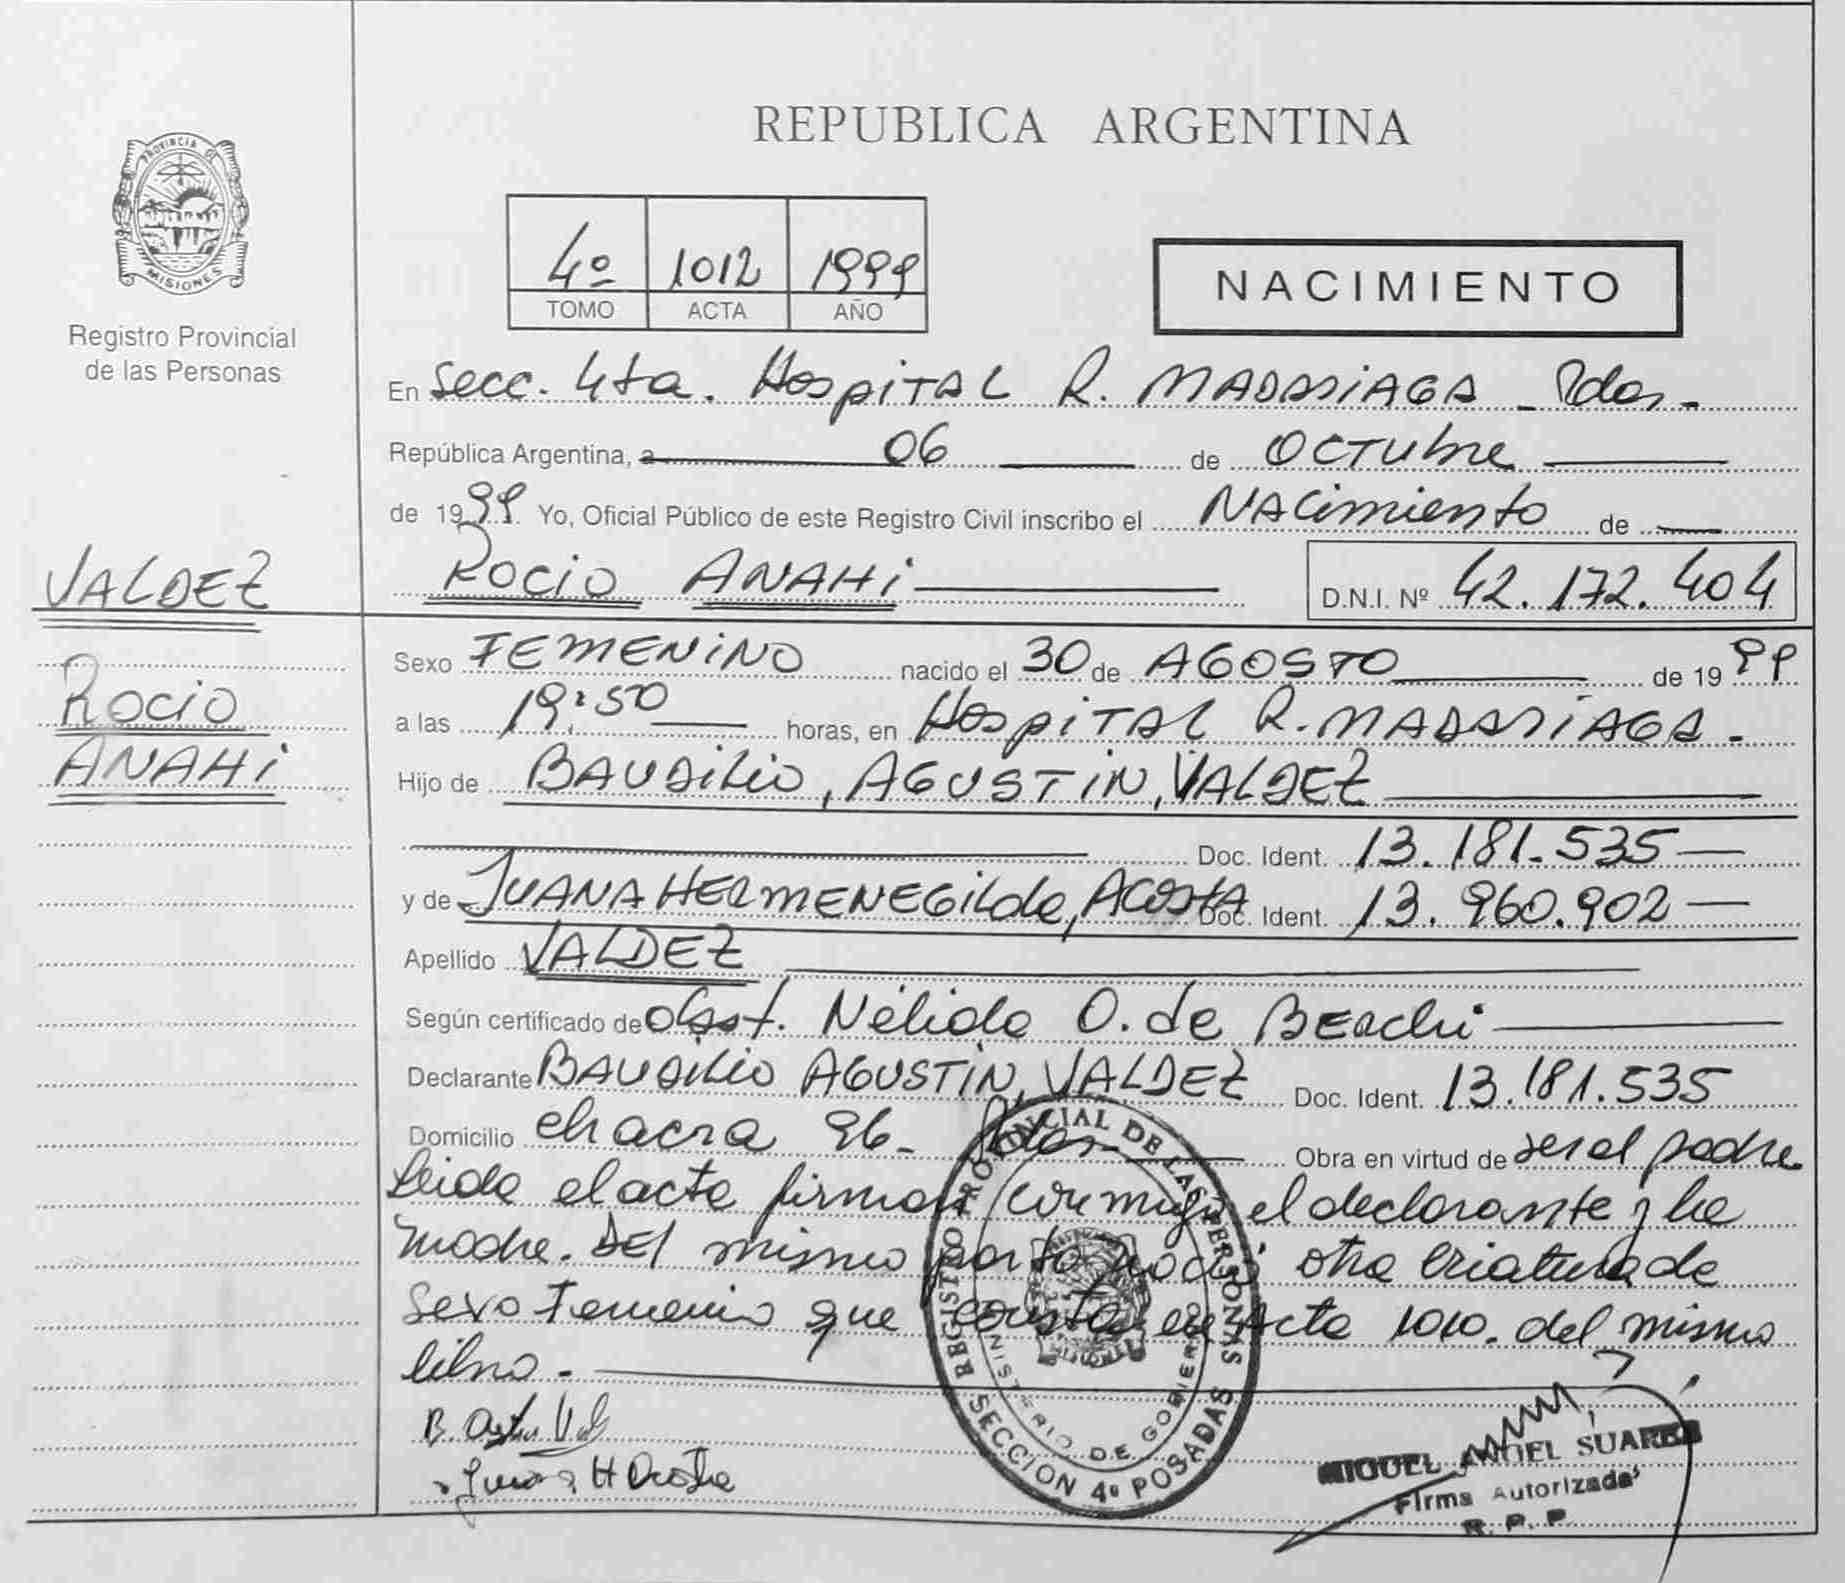 REPUBLICA ARGENTINA
PROVINCIA DE
MISIONES
Registro Provincial
de las Personas
4º 1012 1999
TOMO ACTA AÑO
NACIMIENTO
En Secc. 4ta. Hospital R. MADARIAGA - Pdas -
República Argentina, a 06 de OCTUbre
de 1999 Yo, Oficial Público de este Registro Civil inscribo el NACimiento de
ROCIO ANAHI D.N.I. Nº 42.172.404
VALDEZ
ROCIO
ANAHI
Sexo FEMENINO nacido el 30 de AGOSTO de 1999
a las 19:50 horas, en HospiTAL R. MADARIAGA -
Hijo de BAUDILIO, AGUSTIN, VALDEZ
Doc. Ident. 13.181.535
y de JUANA HERMENEGILda, ACOSTA Doc. Ident. 13.960.902
Apellido VALDEZ
Según certificado de Obst. Nélida O. de BERchi
Declarante BAUDILIO AGUSTIN, VALDEZ Doc. Ident. 13.181.535
Domicilio chacra 96 - Pdas - Obra en virtud de ser el padre
Leida el acta firman conmigo el declarante y la
madre. DEl mismo parto nació otra criatura de
sexo Femenino que consta en Acta 1010. del mismo
libro. -
REGISTRO PROVINCIAL DE LAS PERSONAS
MINISTERIO DE GOBIERNO
SECCION 4º POSADAS
MISIONES
Juana H Acosta
MIGUEL ANGEL SUAREZ
Firma Autorizada
R. P. P.